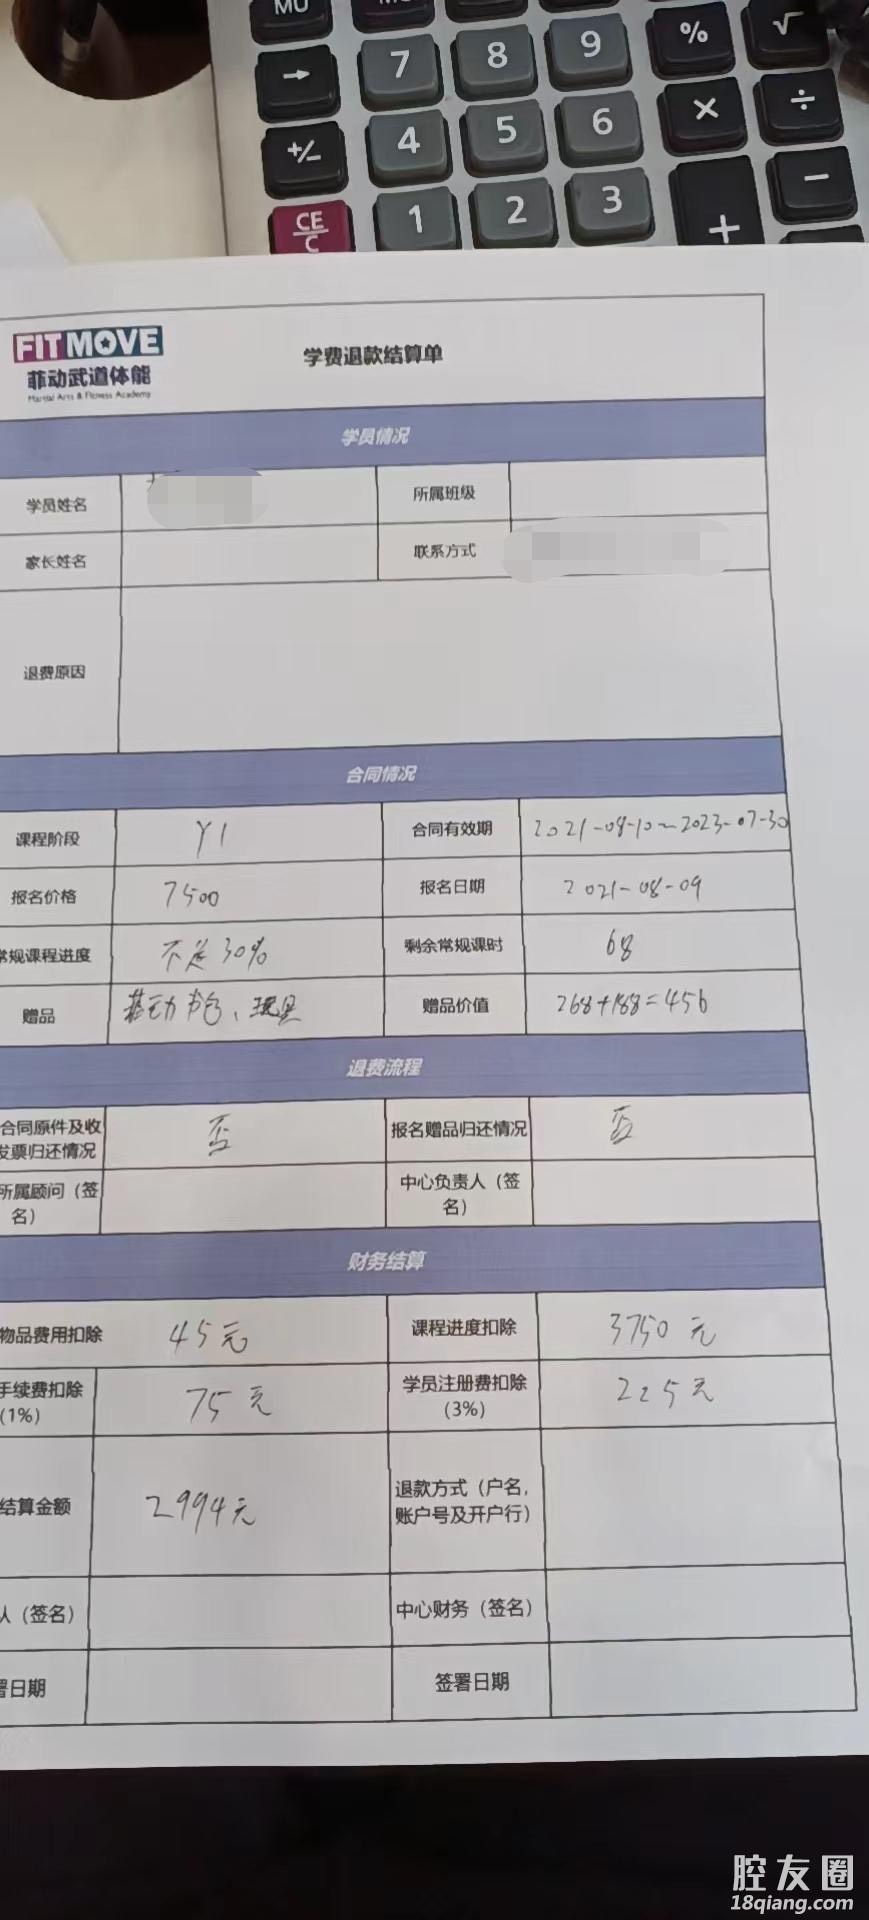 MU
→ 7 8 9 % √
+/- 4 5 6 × ÷
CE/C 1 2 3 + −
FITMOVE
菲动武道体能
Martial Arts & Fitness Academy
学费退款结算单
学员情况
学员姓名 所属班级
家长姓名 联系方式
退费原因
合同情况
课程阶段 Y1 合同有效期 2021-08-10~2023-07-30
报名价格 7500 报名日期 2021-08-09
常规课程进度 不足30% 剩余常规课时 68
赠品 菲动书包、玩具 赠品价值 268+188=456
退费流程
合同原件及收
发票归还情况 否 报名赠品归还情况 否
所属顾问（签
名） 中心负责人（签
名）
财务结算
物品费用扣除 45元 课程进度扣除 3750元
手续费扣除
（1%） 75元 学员注册费扣除
（3%） 225元
结算金额 2994元 退款方式（户名，
账户号及开户行）
人（签名） 中心财务（签名）
署日期 签署日期
腔友圈
18qiang.com